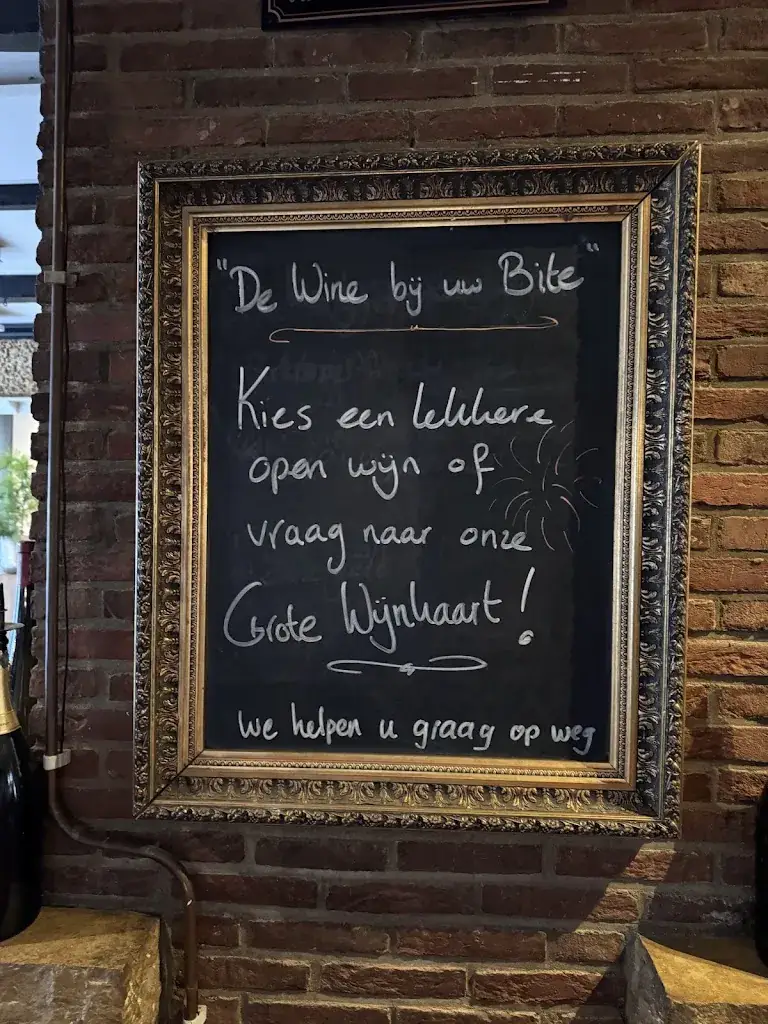 "De Wine bij uw Bite"
Kies een lekkere
open wijn of
vraag naar onze
Grote Wijnkaart!
We helpen u graag op weg